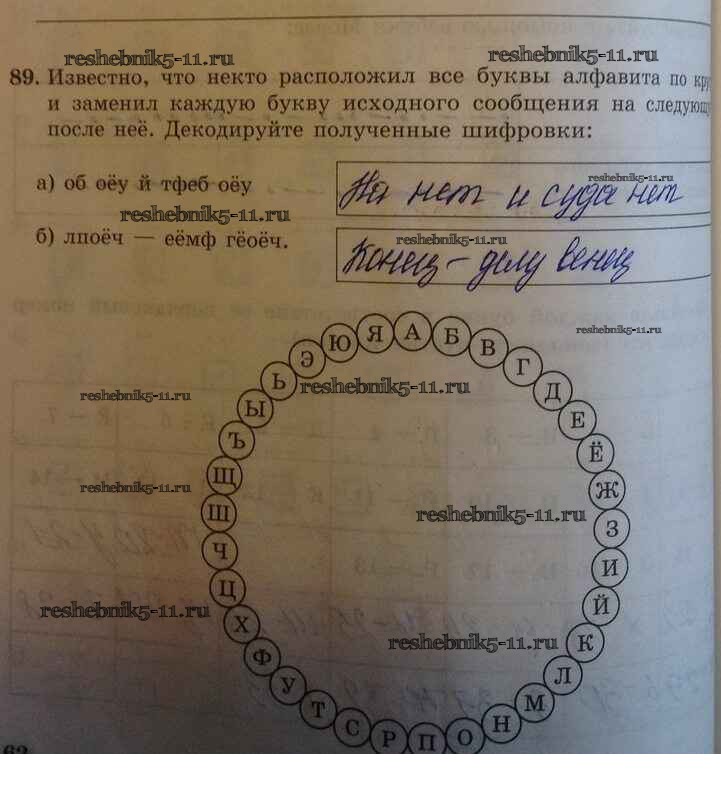 reshebnik5-11.ru reshebnik5-11.ru
89. Известно, что некто расположил все буквы алфавита по кру
и заменил каждую букву исходного сообщения на следующу
после неё. Декодируйте полученные шифровки:
а) об оёу й тфеб оёу
На нет и суда нет
reshebnik5-11.ru
reshebnik5-11.ru
б) лпоёч — еёмф гёоёч.
Конец – делу венец
reshebnik5-11.ru
reshebnik5-11.ru
А
Б
В
Г
Д
Е
Ё
Ж
З
И
Й
К
Л
М
Н
О
П
Р
С
Т
У
Ф
Х
Ц
Ч
Ш
Щ
Ъ
Ы
Ь
Э
Ю
Я
reshebnik5-11.ru
reshebnik5-11.ru
reshebnik5-11.ru
reshebnik5-11.ru
reshebnik5-11.ru
reshebnik5-11.ru